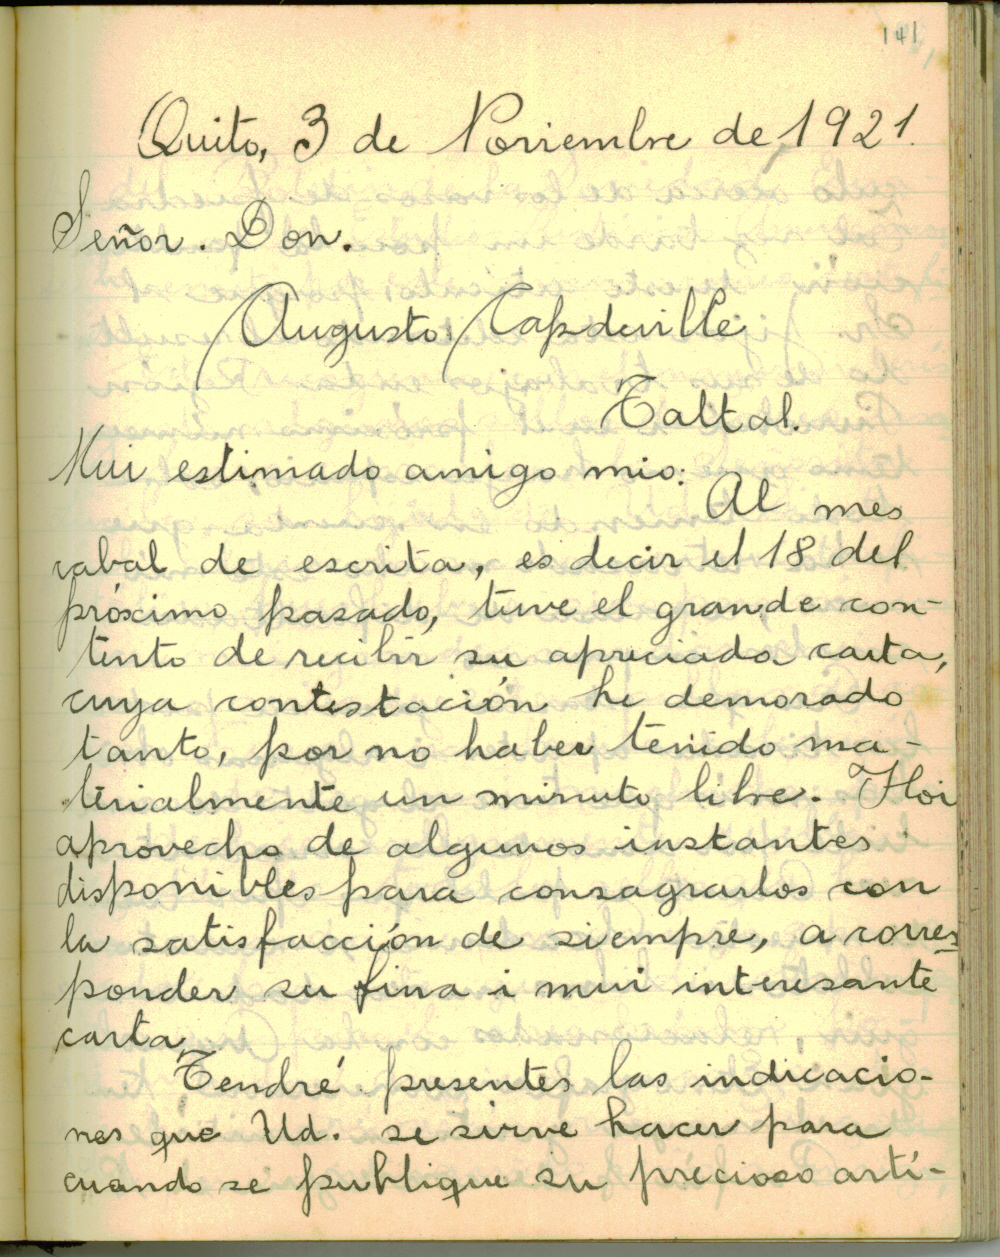 141
Quito, 3 de Noviembre de 1921.
Señor. Don.
Augusto Capdeville
Taltal.
Mui estimado amigo mio:
Al mes
cabal de escrita, es decir el 18 del
próximo pasado, tuve el grande con-
tento de recibir su apreciada carta,
cuya contestación he demorado
tanto, por no haber tenido ma-
terialmente un minuto libre. Hoi
aprovecho de algunos instantes
disponibles para consagrarlos con
la satisfacción de siempre, a corres
ponder su fina i mui interesante
carta.
Tendré presentes las indicacio-
nes que Ud. se sirve hacer para
cuando se publique su precioso artí-